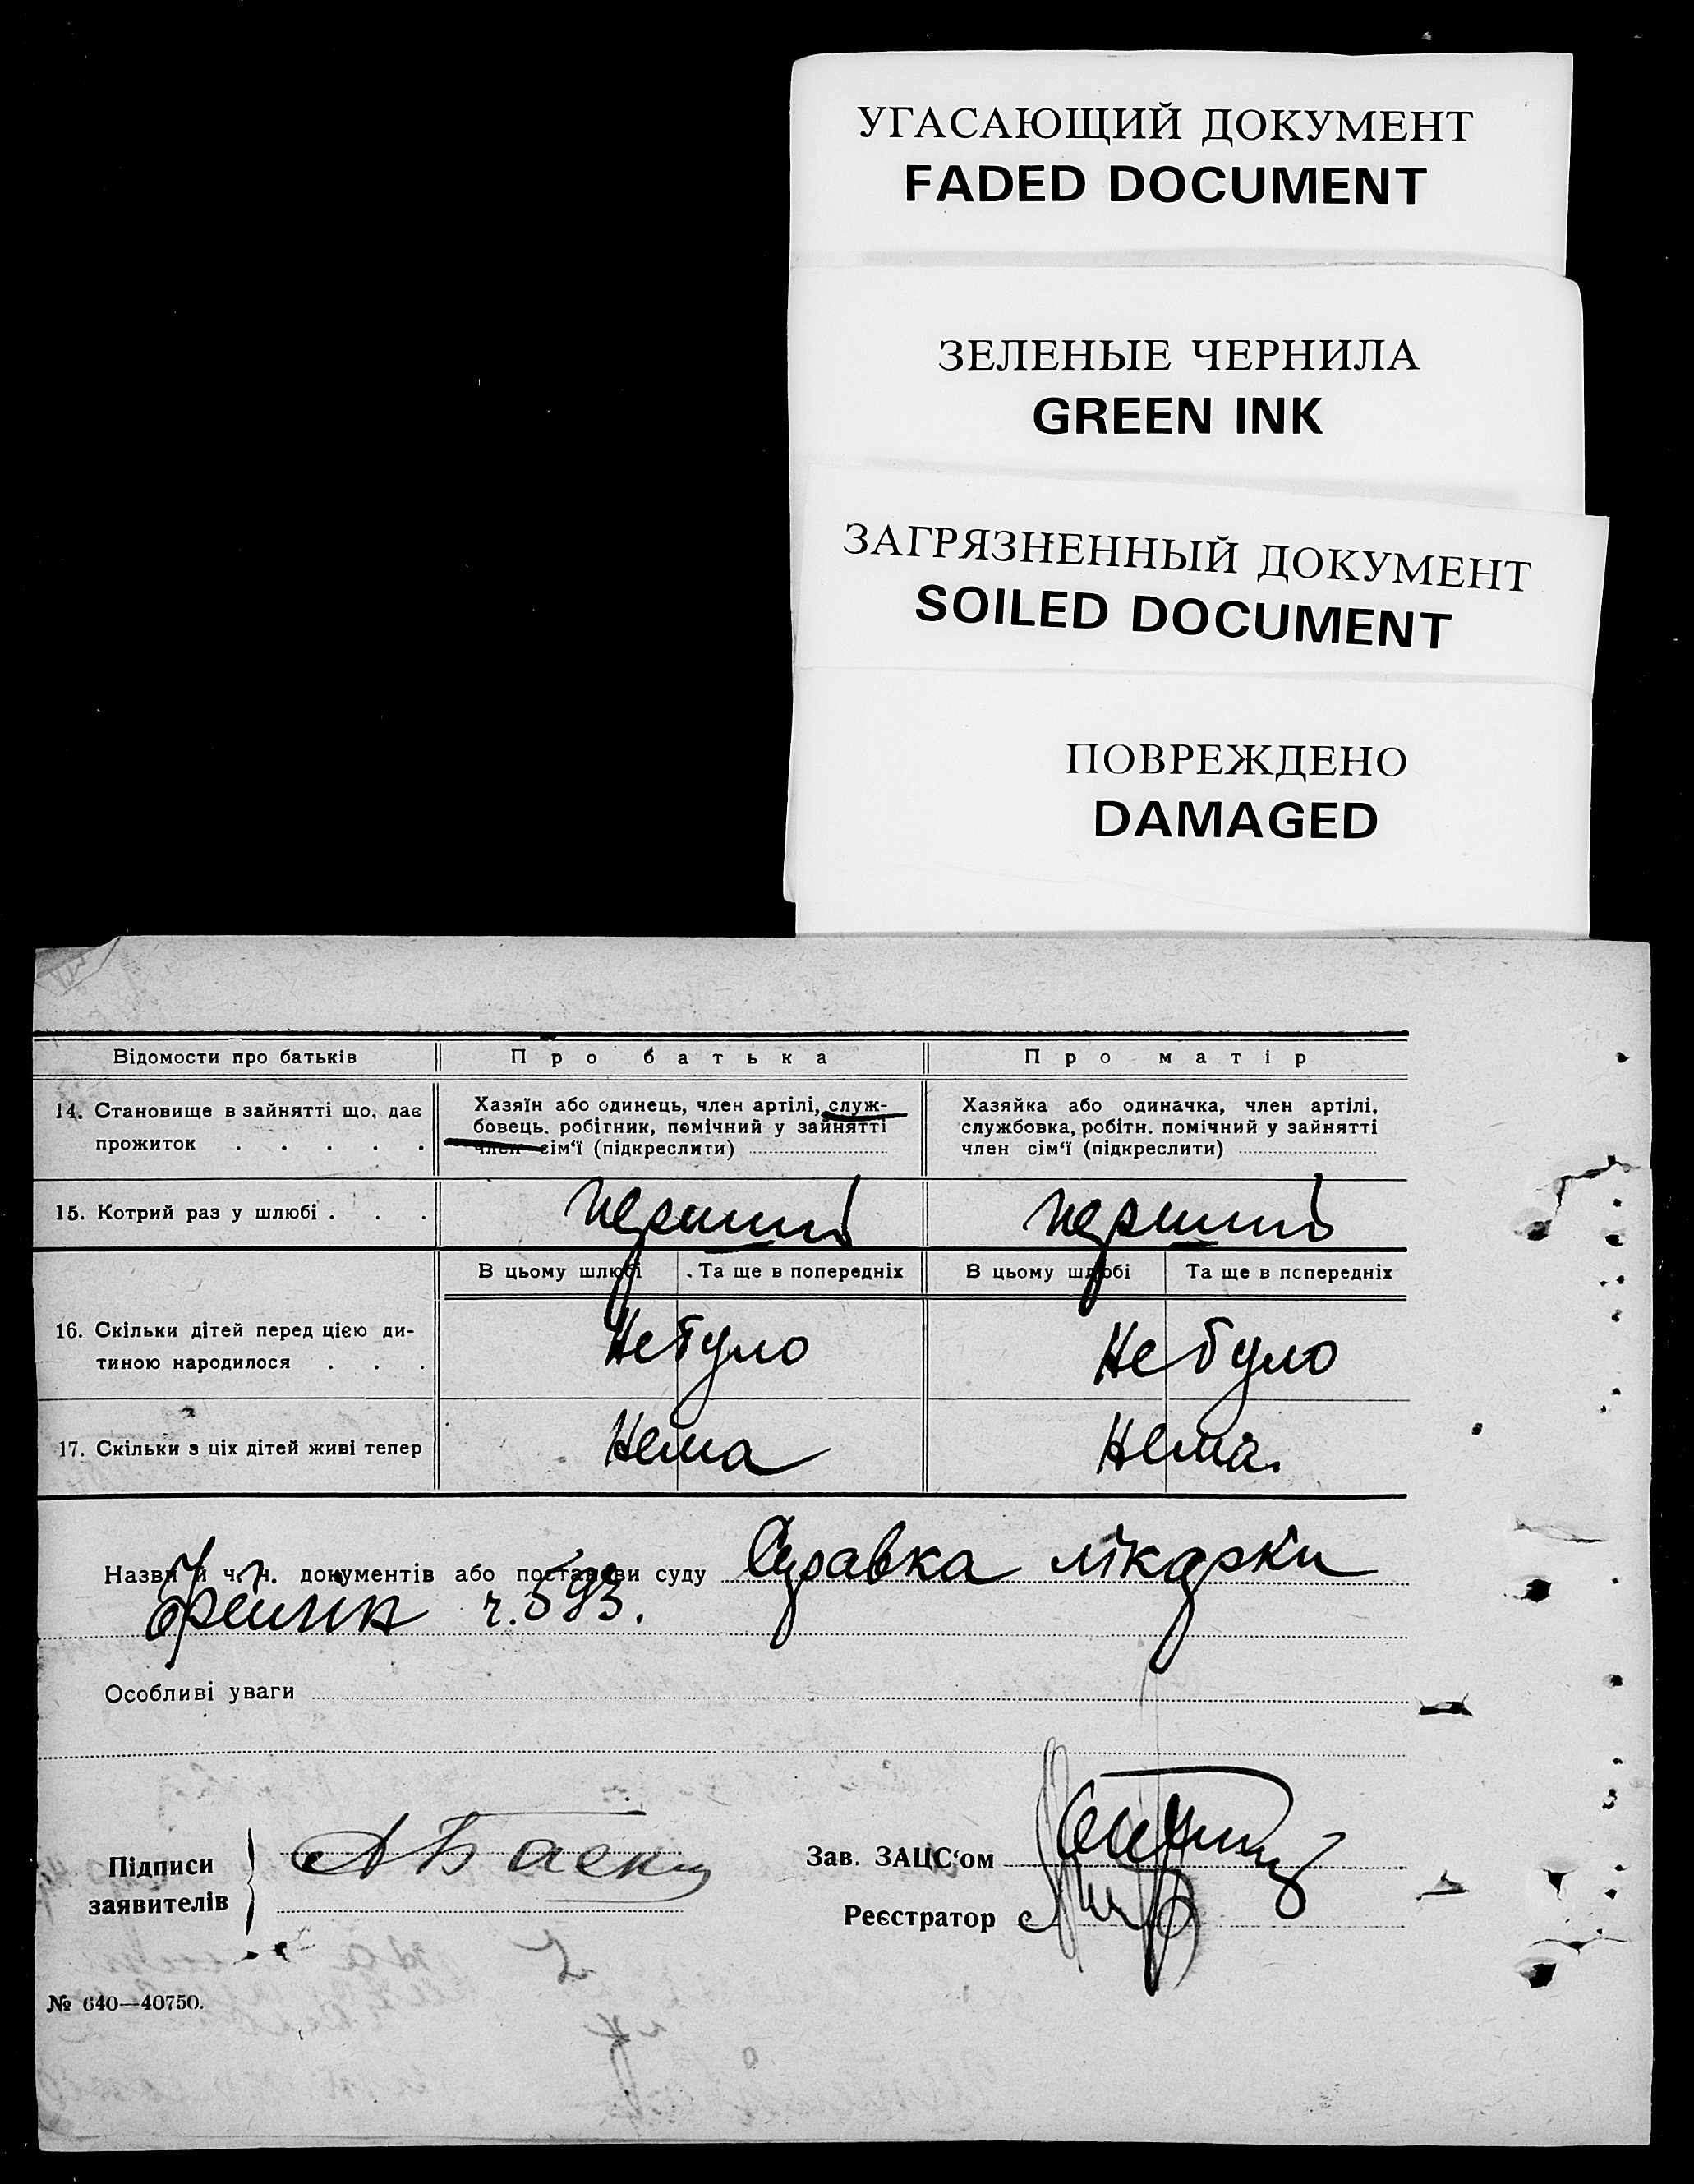 УГАСАЮЩИЙ ДОКУМЕНТ
FADED DOCUMENT
ЗЕЛЕНЫЕ ЧЕРНИЛА
GREEN INK
ЗАГРЯЗНЕННЫЙ ДОКУМЕНТ
SOILED DOCUMENT
ПОВРЕЖДЕНО
DAMAGED
Відомости про батьків Про батька Про матір
14. Становище в зайнятті що, дає прожиток . . . . .
Хазяїн або одинець, член артілі, служ-
бовець. робітник, помічний у зайнятті
член сім'ї (підкреслити)
Хазяйка або одиначка, член артілі,
службовка, робітн. помічний у зайнятті
член сім'ї (підкреслити)
15. Котрий раз у шлюбі . . . перший перший
В цьому шлюбі Та ще в попередніх В цьому шлюбі Та ще в попередніх
16. Скільки дітей перед цією ди-
тиною народилося . . . Не було Не було
17. Скільки з ціх дітей живі тепер Нема Нема.
Назви й ч.ч. документів або постанови суду Справка лікарки
ч. 593.
Особливі уваги
Підписи
заявителів
Зав. ЗАЦС'ом
Реєстратор
№ 640—40750.